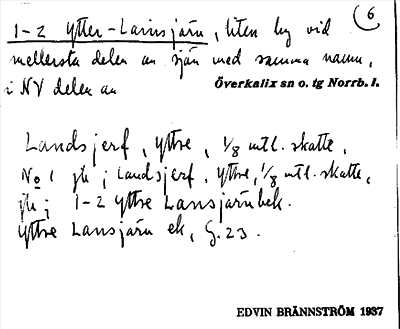 6
1-2 Ytter-Lansjärv, liten by vid
mellersta delen av sjön med samma namn,
i NV delen av Överkalix sn o. tg Norrb. l.
Landsjerf, Yttre, 1/8 mtl. skatte,
No 1 jb; Landsjerf, Yttre, 1/8 mtl. skatte,
jb; 1-2 Yttre Lansjärv bek.
Yttre Lansjärv ek, G.23.
EDVIN BRÄNNSTRÖM 1937